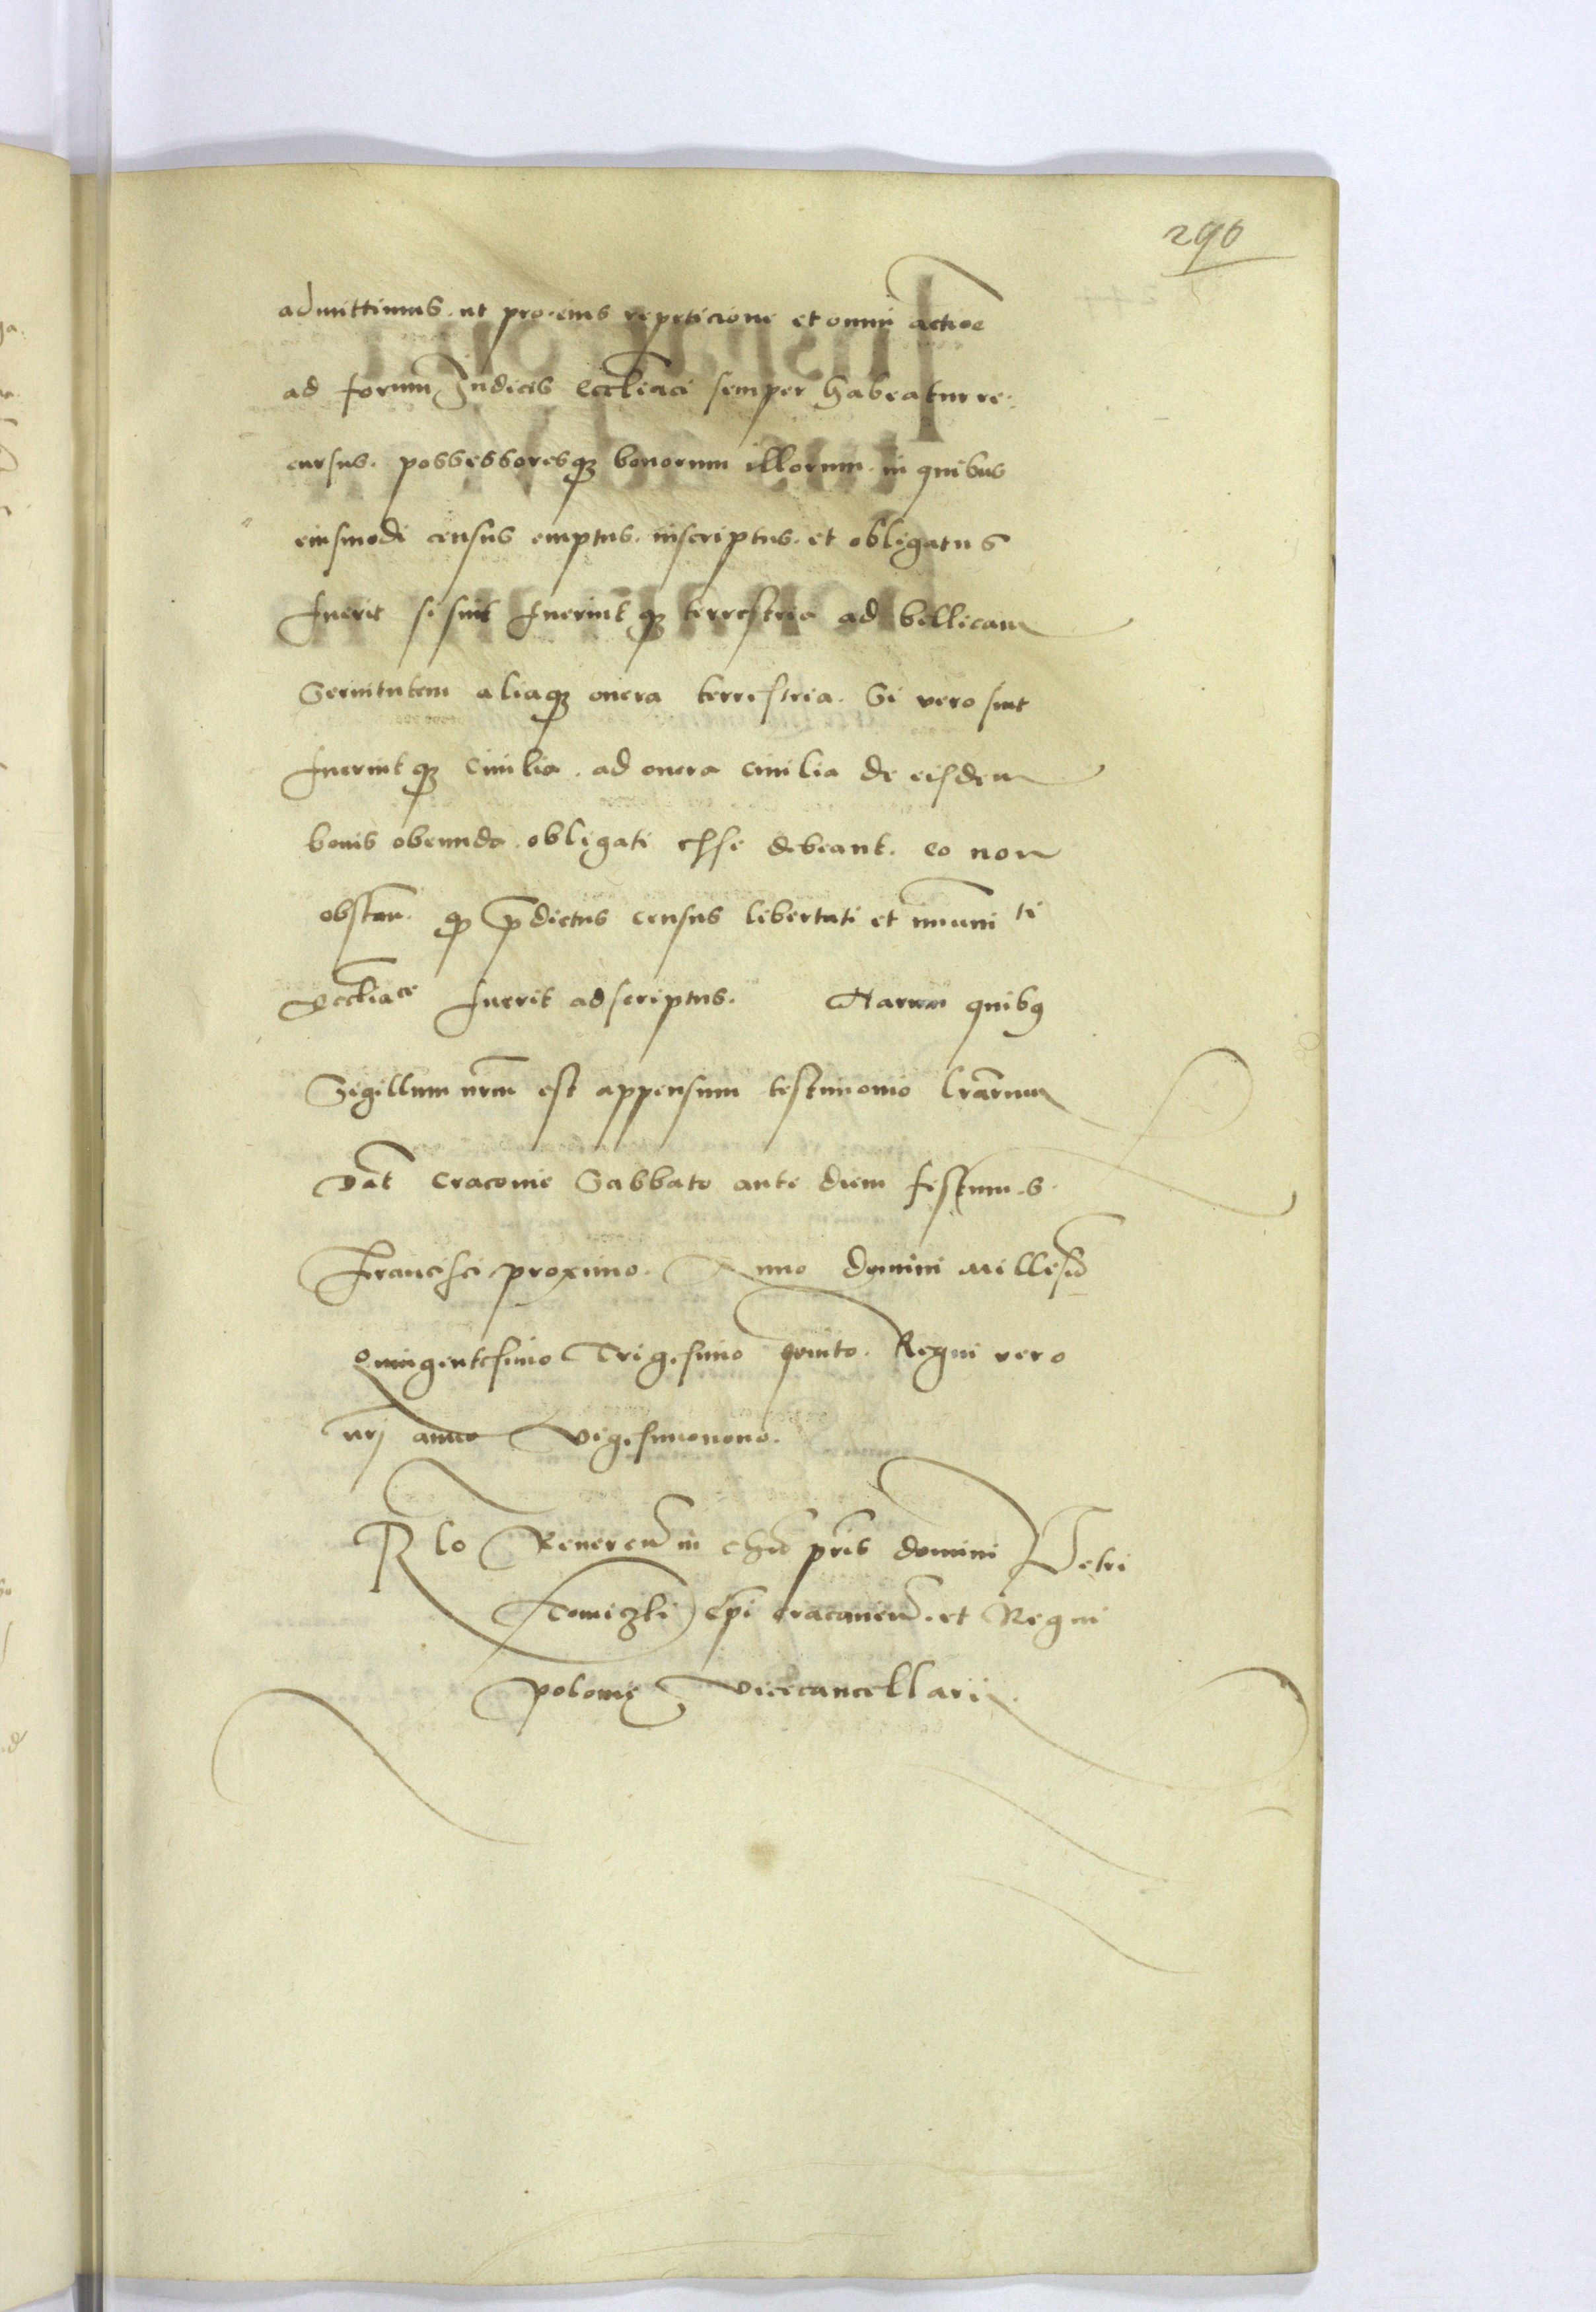 296
admittimus. ut pro eius repeticione et omni actioe
ad forum Iudicis eccliaci semper habeatur re-
cursus. possessoresq3 bonorum illorum. in quibus
eiusmodi census emptus. inscriptus. et obligatus
fuerit si sint fuerint q3 terrestria ad bellicam
Seruitutem aliaq3 onera terrestria. Si vero sint
fuerint q3 Ciuilia. ad onera ciuilia de eisdem
bonis obeunda obligati esse debeant. eo non
obstan. qp pdictus census libertati et imuniti
Eccliace fuerit adscriptus. Harum quibg
Sigillum nrm est appensum testimonio lrarum
Dat Cracouie Sabbato ante diem festum. s.
Francisci proximo. Anno domini Millesio
Quingentesimo Trigesimo quinto. Regni vero
nrj anno Vigesimonono.
Rlo Reueren in chro pris domini Petri
Tomiczki Epi cracouien. et Regni
polonie Vicecancellarij.